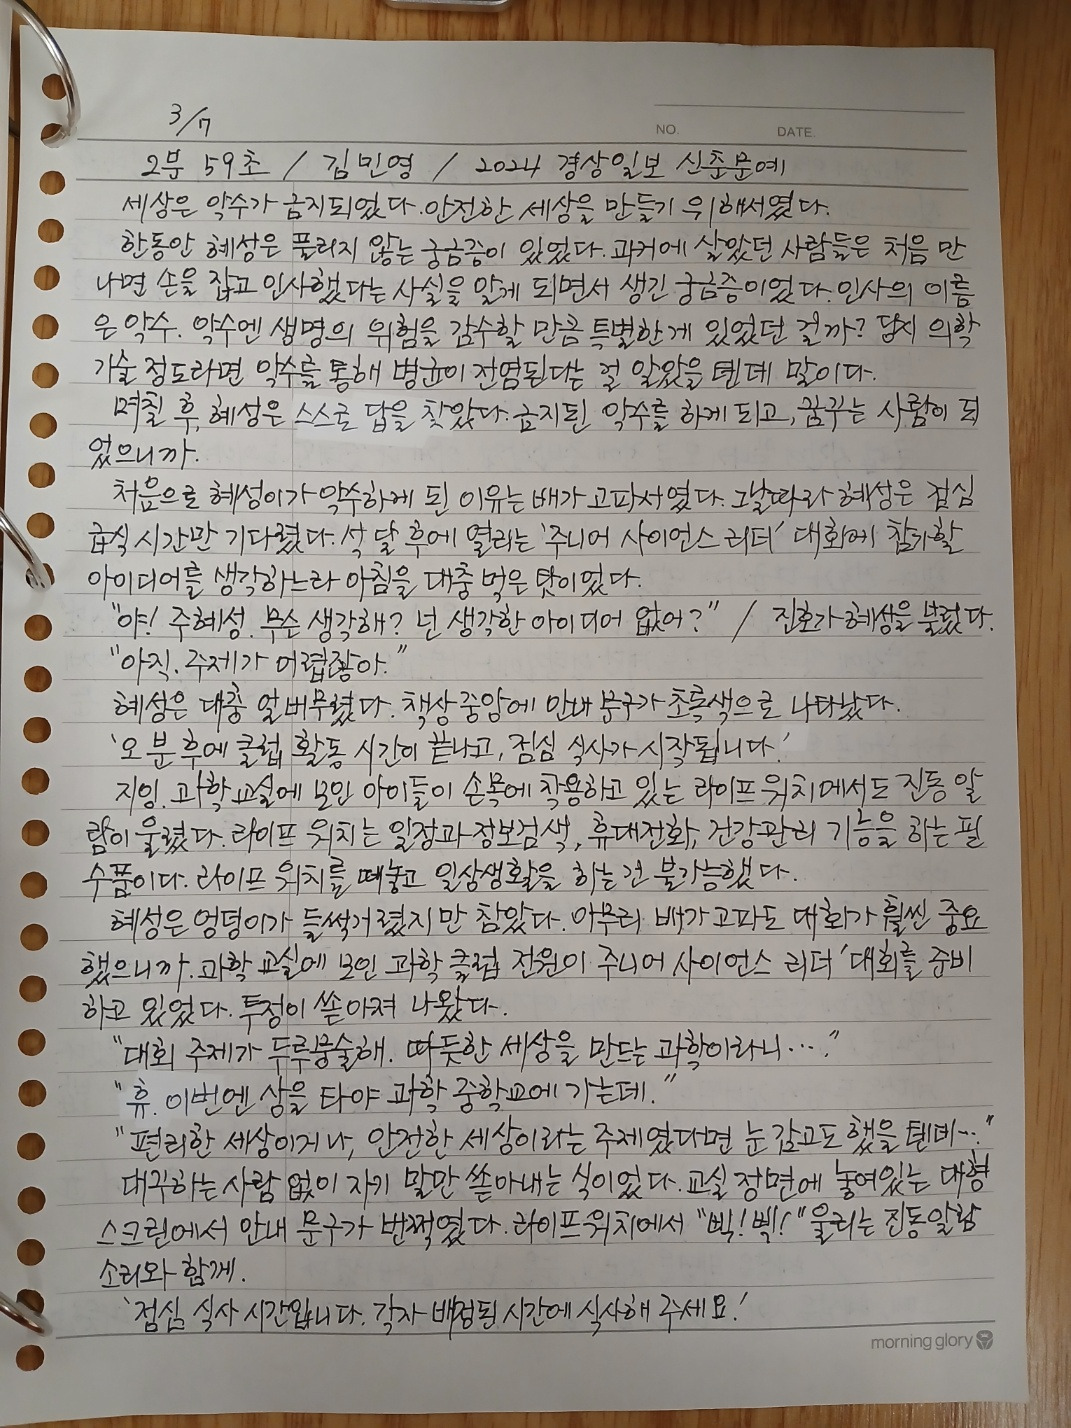 3/7
NO. DATE.
2분 59초 / 김민영 / 2024 경상일보 신춘문예
세상은 악수가 금지되었다. 안전한 세상을 만들기 위해서였다.
한동안 혜성은 풀리지 않는 궁금증이 있었다. 과거에 살았던 사람들은 처음 만
나면 손을 잡고 인사했다는 사실을 알게 되면서 생긴 궁금증이었다. 인사의 이름
은 악수. 악수엔 생명의 위험을 감수할 만큼 특별한게 있었던 걸까? 당시 의학
기술 정도라면 악수를 통해 병균이 전염된다는 걸 알았을 텐데 말이다.
며칠 후, 혜성은 스스로 답을 찾았다. 금지된 악수를 하게 되고, 꿈꾸는 사람이 되
었으니까.
처음으로 혜성이가 악수하게 된 이유는 배가 고파서였다. 그날따라 혜성은 점심
급식 시간만 기다렸다. 석 달 후에 열리는 '주니어 사이언스 리더' 대회에 참가할
아이디어를 생각하느라 아침을 대충 먹은 탓이었다.
"야! 주혜성. 무슨 생각해? 넌 생각한 아이디어 없어?" / 진호가 혜성을 불렀다.
"아직. 주제가 어렵잖아."
혜성은 대충 얼버무렸다. 책상 중앙에 안내 문구가 초록색으로 나타났다.
'오 분 후에 클럽 활동 시간이 끝나고, 점심 식사가 시작됩니다.'
지잉. 과학 교실에 모인 아이들이 손목에 착용하고 있는 라이프 워치에서도 진동 알
람이 울렸다. 라이프 워치는 일정과 정보검색, 휴대전화, 건강관리 기능을 하는 필
수품이다. 라이프 워치를 떼놓고 일상생활을 하는 건 불가능했다.
혜성은 엉덩이가 들썩거렸지만 참았다. 아무리 배가 고파도 대회가 훨씬 중요
했으니까. 과학 교실에 모인 과학 클럽 전원이 주니어 사이언스 리더' 대회를 준비
하고 있었다. 투정이 쏟아져 나왔다.
"대회 주제가 두루뭉술해. 따듯한 세상을 만드는 과학이라니…."
"휴. 이번엔 상을 타야 과학 중학교에 가는데."
"편리한 세상이거나, 안전한 세상이라는 주제였다면 눈 감고도 했을 텐데…."
대꾸하는 사람 없이 자기 말만 쏟아내는 식이었다. 교실 정면에 놓여있는 대형
스크린에서 안내 문구가 번쩍였다. 라이프 워치에서 "삑! 삑!" 울리는 진동 알람
소리와 함께.
'점심 식사 시간입니다. 각자 배정된 시간에 식사해 주세요.'
morning glory